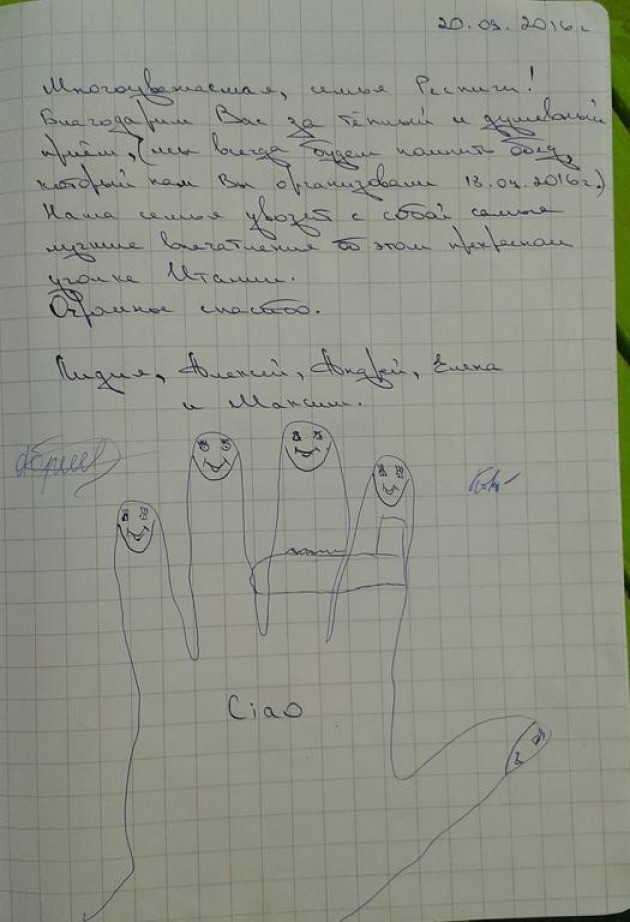 20.09.2016г
Многоуважаемая, семья Респиги!
Благодарим Вас за тёплый и душевный
приём, (мы всегда будем помнить обед,
который нам Вы организовали 18.09.2016г.)
Наша семья увозет с собой самые
лучшие впечатления об этом прекрасном
уголке Италии.
Огромное спасибо.
Лидия, Алексей, Андрей, Елена
и Максим.
Ciao